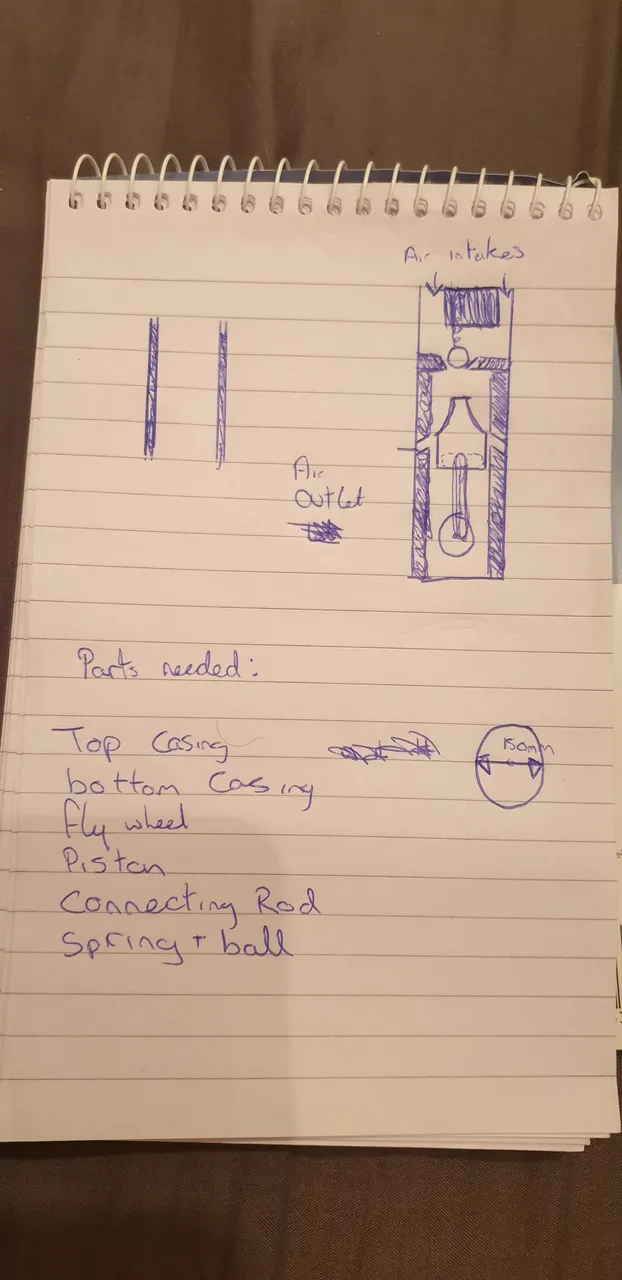 Air intakes
Air
outlet
Parts needed:
Top Casing
150mm
bottom Casing
fly wheel
Piston
Connecting Rod
Spring + ball